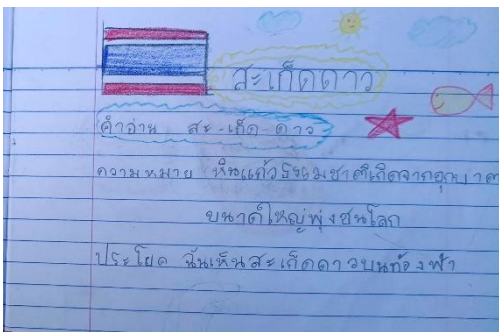 สะเก็ดดาว
คำอ่าน สะ-เก็ด-ดาว
ความหมาย หินแก้วธรรมชาติเกิดจากอุกบาต
ขนาดใหญ่พุ่งชนโลก
ประโยค ฉันเห็นสะเก็ดดาวบนท้องฟ้า